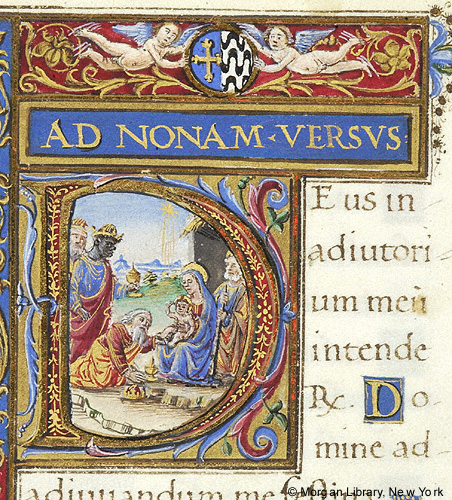 AD NONAM·VERSVS
Deus in
adiutori
um meũ
intende
R̃. Do
mine ad
adiuuandum me
© Morgan Library, New York